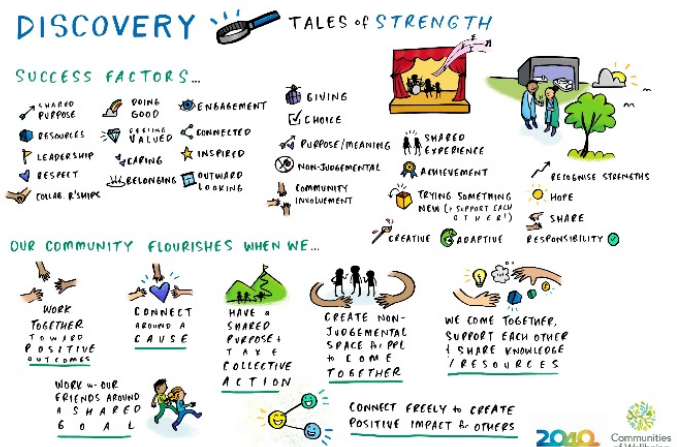 DISCOVERY
TALES of STRENGTH
SUCCESS FACTORS...
SHARED
PURPOSE
RESOURCES
LEADERSHIP
RESPECT
COLLAB. R'SHIPS
DOING
GOOD
FEELING
VALUED
CARING
BELONGING
ENGAGEMENT
CONNECTED
INSPIRED
OUTWARD
LOOKING
GIVING
CHOICE
PURPOSE/MEANING
NON-JUDGEMENTAL
COMMUNITY
INVOLVEMENT
SHARED
EXPERIENCE
ACHIEVEMENT
TRYING SOMETHING
NEW (+ SUPPORT EACH
OTHER!)
CREATIVE
ADAPTIVE
RECOGNISE STRENGTHS
HOPE
SHARE
RESPONSIBILITY
OUR COMMUNITY FLOURISHES WHEN WE...
WORK
TOGETHER
TOWARD
POSITIVE
OUTCOMES
CONNECT
AROUND A
CAUSE
HAVE A
SHARED
PURPOSE +
TAKE
COLLECTIVE
ACTION
CREATE NON-
JUDGEMENTAL
SPACE for PPL
to COME
TOGETHER
WE COME TOGETHER,
SUPPORT EACH OTHER
+ SHARE KNOWLEDGE
/ RESOURCES
WORK w- OUR
FRIENDS AROUND
A SHARED
GOAL
CONNECT FREELY to CREATE
POSITIVE IMPACT for OTHERS
2040
Communities
of Wellbeing